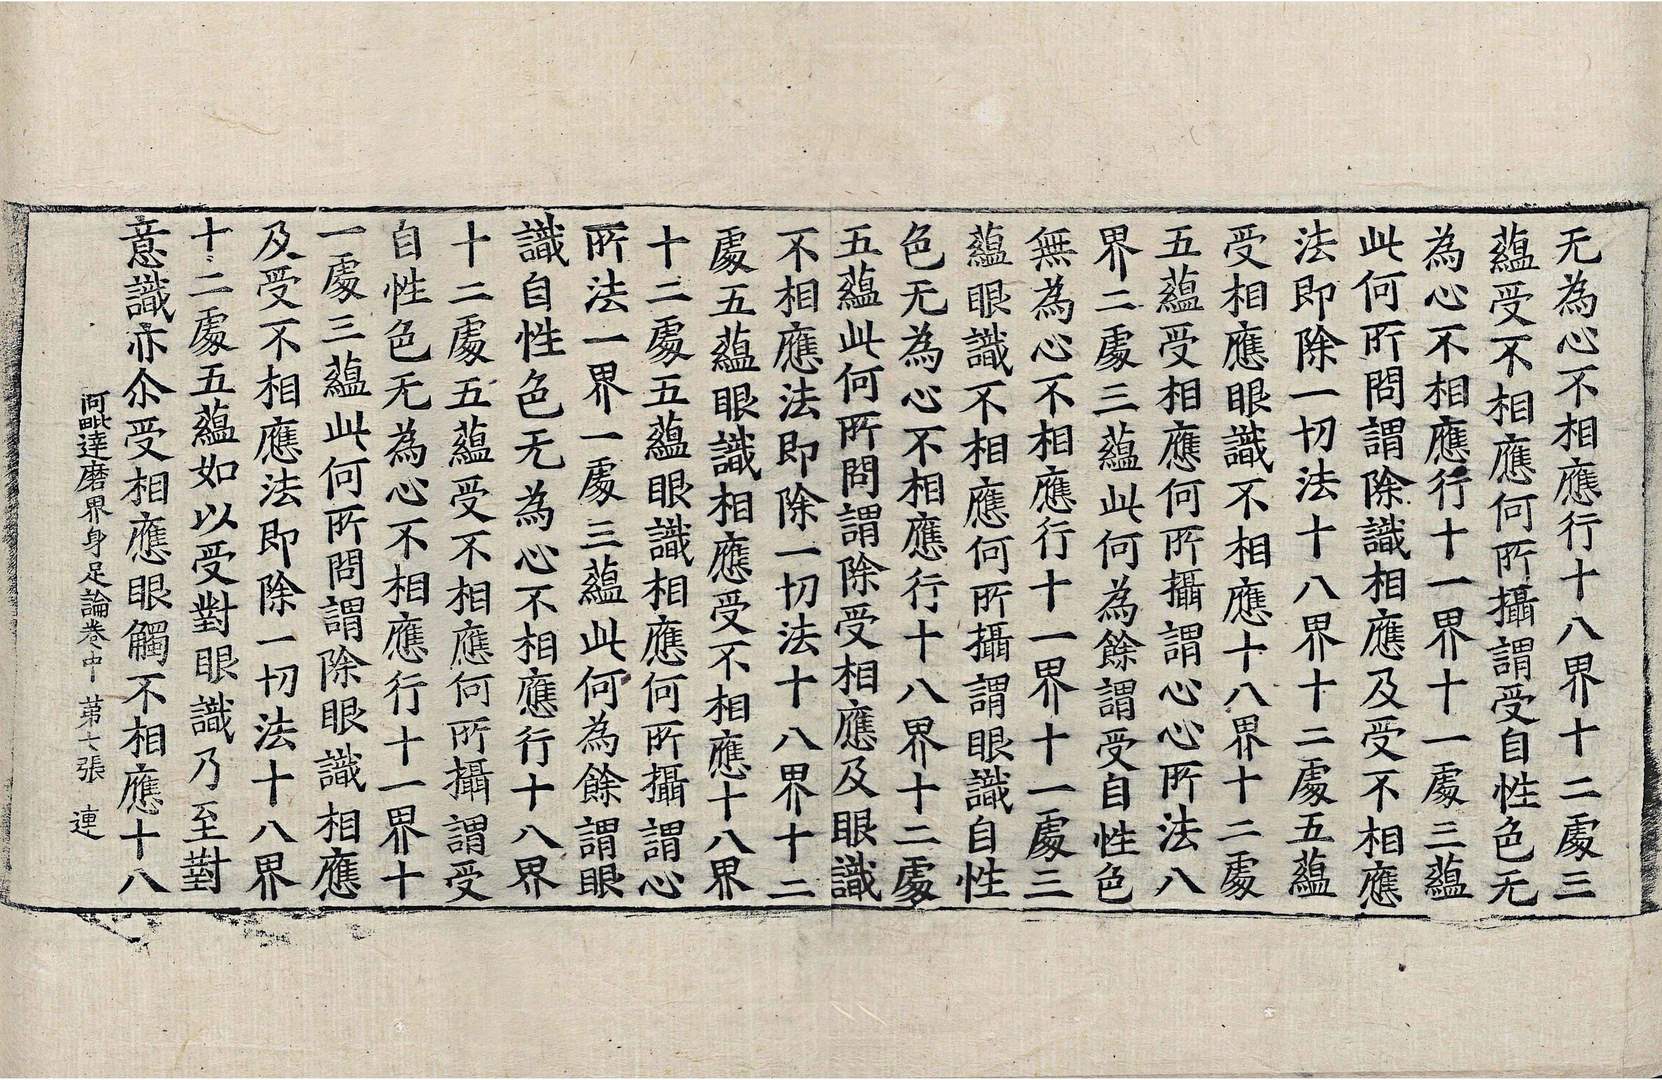 无為心不相應行十八界十二處三
蘊受不相應何所攝謂受自性色无
為心不相應行十一界十一處三蘊
此何所問謂除識相應及受不相應
法即除一切法十八界十二處五蘊
受相應眼識不相應十八界十二處
五蘊受相應何所攝謂心心所法八
界二處三蘊此何為餘謂受自性色
無為心不相應行十一界十一處三
蘊眼識不相應何所攝謂眼識自性
色无為心不相應行十八界十二處
五蘊此何所問謂除受相應及眼識
不相應法即除一切法十八界十二
處五蘊眼識相應受不相應十八界
十二處五蘊眼識相應何所攝謂心
所法一界一處三蘊此何為餘謂眼
識自性色无為心不相應行十八界
十二處五蘊受不相應何所攝謂受
自性色无為心不相應行十一界十
一處三蘊此何所問謂除眼識相應
及受不相應法即除一切法十八界
十二處五蘊如以受對眼識乃至對
意識亦尒受相應眼觸不相應十八
阿毗達磨界身足論卷中 苐七張 連